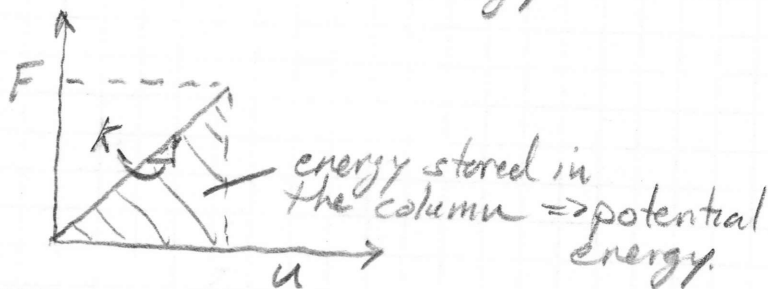 F
K
energy stored in
the column => potential
energy.
u